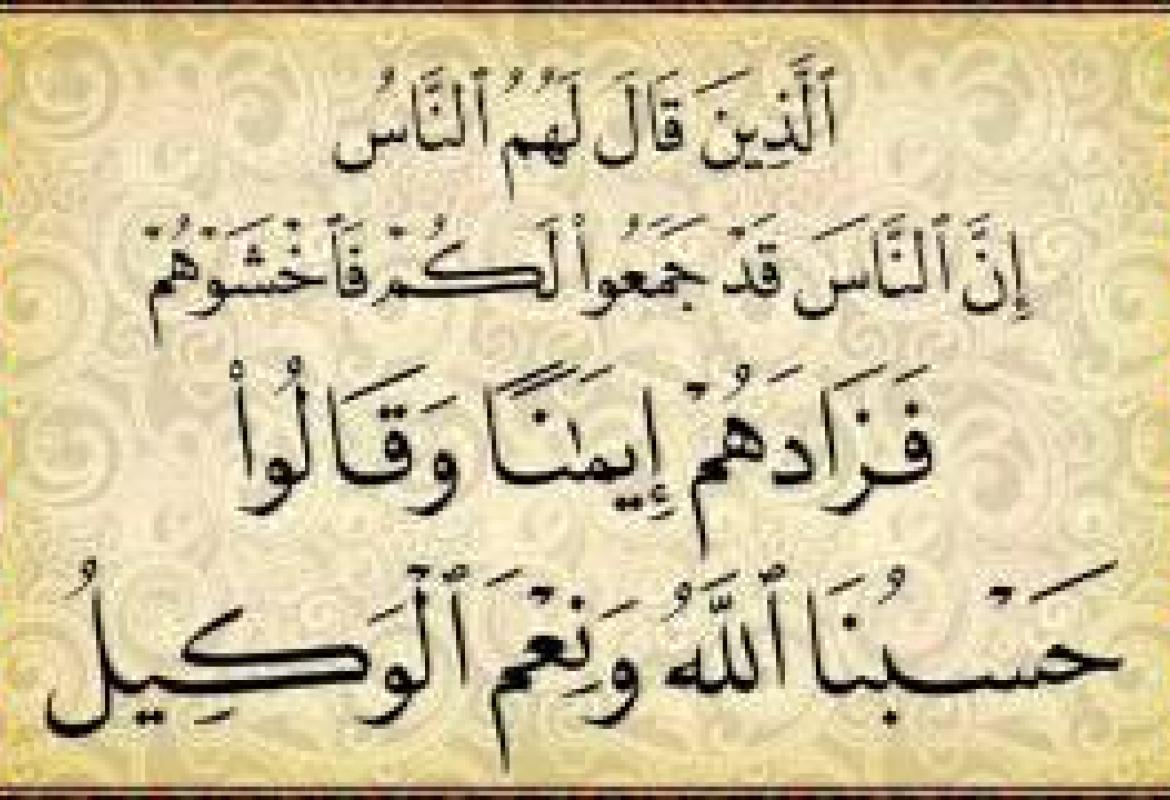 ٱلَّذِينَ قَالَ لَهُمُ ٱلنَّاسُ
إِنَّ ٱلنَّاسَ قَدْ جَمَعُوا۟ لَكُمْ فَٱخْشَوْهُمْ
فَزَادَهُمْ إِيمَٰنًا وَقَالُوا۟
حَسْبُنَا ٱللَّهُ وَنِعْمَ ٱلْوَكِيلُ